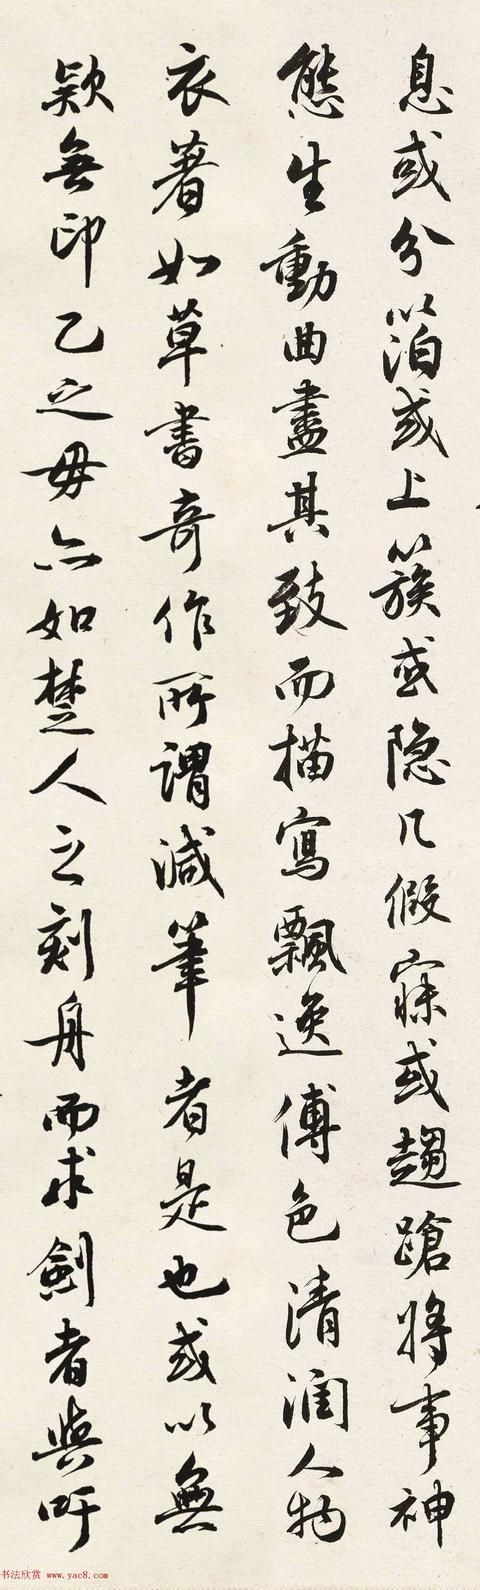 息或分以箔或上簇或隐几假寐或趨蹌将事神
態生動曲盡其致而描寫飄逸傅色清潤人物
衣著如草書奇作所謂減筆者是也或以無
欵無印乙之毋亦如楚人之刻舟而求劍者與吁
书法欣赏 www.yac8.com